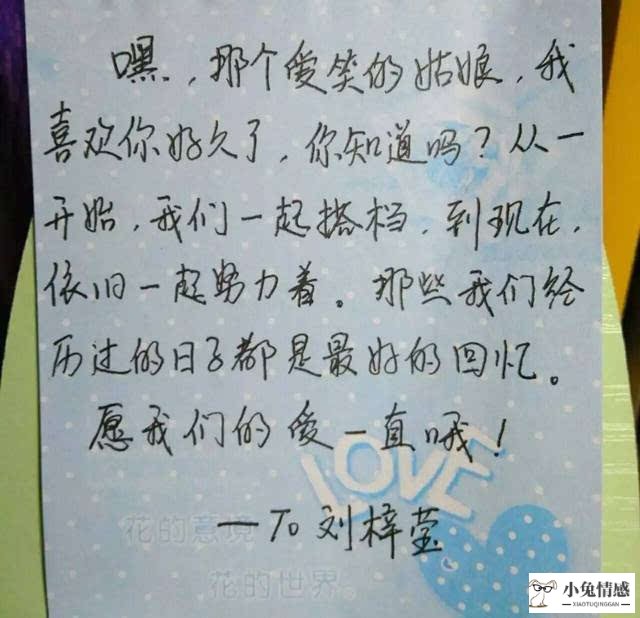 嘿，那个爱笑的姑娘，我
喜欢你好久了，你知道吗？从一
开始，我们一起搭档，到现在，
依旧一起努力着。那些我们经
历过的日子都是最好的回忆。
愿我们的爱一直哦！
LOVE
花的意境
—To 刘梓莹
花的世界
小兔情感
XIAOTUQINGGAN